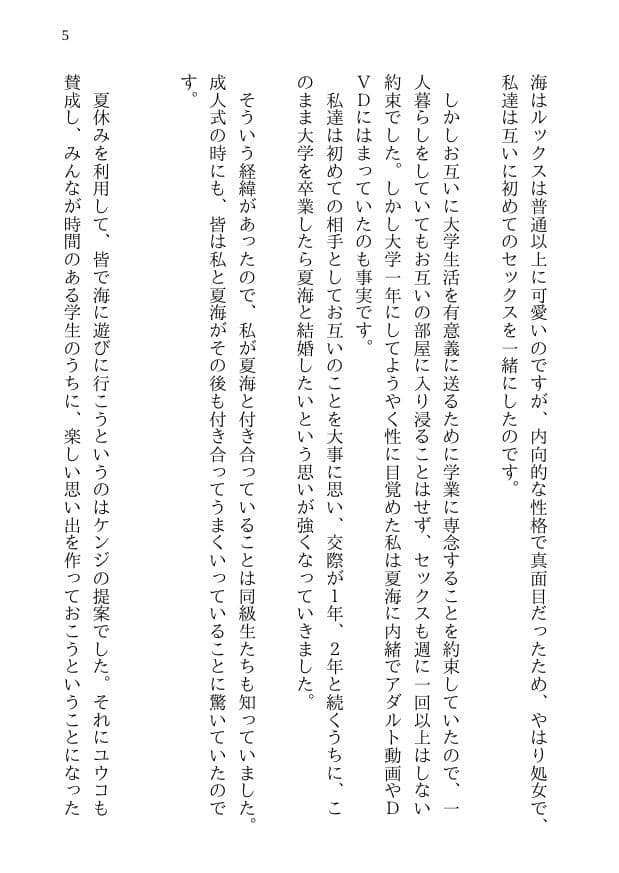 5
海はルックスは普通以上に可愛いのですが、内向的な性格で真面目だったため、やはり処女で、
私達は互いに初めてのセックスを一緒にしたのです。
しかしお互いに大学生活を有意義に送るために学業に専念することを約束していたので、一
人暮らしをしていてもお互いの部屋に入り浸ることはせず、セックスも週に一回以上はしない
約束でした。しかし大学一年にしてようやく性に目覚めた私は夏海に内緒でアダルト動画やＤ
ＶＤにはまっていたのも事実です。
私達は初めての相手としてお互いのことを大事に思い、交際が１年、２年と続くうちに、こ
のまま大学を卒業したら夏海と結婚したいという思いが強くなっていきました。
そういう経緯があったので、私が夏海と付き合っていることは同級生たちも知っていました。
成人式の時にも、皆は私と夏海がその後も付き合ってうまくいっていることに驚いていたので
す。
夏休みを利用して、皆で海に遊びに行こうというのはケンジの提案でした。それにユウコも
賛成し、みんなが時間のある学生のうちに、楽しい思い出を作っておこうということになった